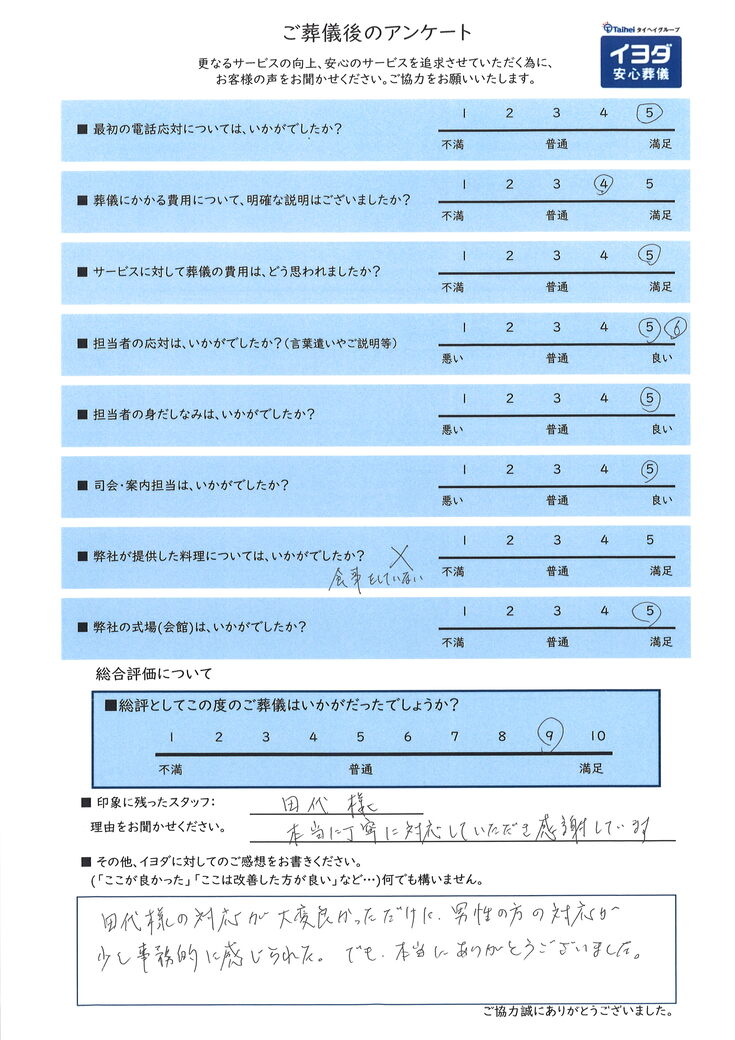 ご葬儀後のアンケート
Taihei タイヘイグループ
イヨダ
安心葬儀
更なるサービスの向上、安心のサービスを追求させていただく為に、
お客様の声をお聞かせください。ご協力をお願いいたします。
■ 最初の電話応対については、いかがでしたか?
1 2 3 4 5
不満 普通 満足
■ 葬儀にかかる費用について、明確な説明はございましたか?
1 2 3 4 5
不満 普通 満足
■ サービスに対して葬儀の費用は、どう思われましたか?
1 2 3 4 5
不満 普通 満足
■ 担当者の応対は、いかがでしたか?(言葉遣いやご説明等)
1 2 3 4 5 6
悪い 普通 良い
■ 担当者の身だしなみは、いかがでしたか?
1 2 3 4 5
悪い 普通 良い
■ 司会・案内担当は、いかがでしたか?
1 2 3 4 5
悪い 普通 良い
■ 弊社が提供した料理については、いかがでしたか?
食事をしていない
1 2 3 4 5
不満 普通 満足
■ 弊社の式場(会館)は、いかがでしたか?
1 2 3 4 5
不満 普通 満足
総合評価について
■総評としてこの度のご葬儀はいかがだったでしょうか?
1 2 3 4 5 6 7 8 9 10
不満 普通 満足
■ 印象に残ったスタッフ: 田代様
理由をお聞かせください。 本当に丁寧に対応していただき感謝しています
■ その他、イヨダに対してのご感想をお書きください。
(「ここが良かった」「ここは改善した方が良い」など…)何でも構いません。
田代様の対応が大変良かっただけに、男性の方の対応が
少し事務的に感じられた。でも、本当にありがとうございました。
ご協力誠にありがとうございました。